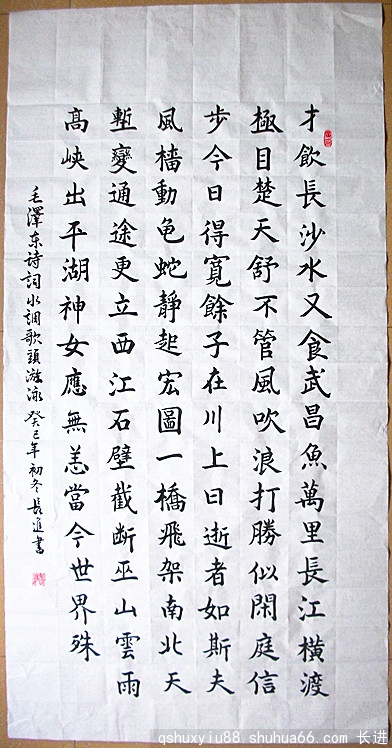 才飲長沙水又食武昌魚萬里長江橫渡
極目楚天舒不管風吹浪打勝似閑庭信
步今日得寬餘子在川上曰逝者如斯夫
風檣動龟蛇靜起宏圖一橋飛架南北天
塹變通途更立西江石壁截断巫山雲雨
髙峽出平湖神女應無恙當今世界殊
毛澤东詩詞水調歌頭游泳 癸巳年初冬長進書
qshuxyiu88.shuhua66.com 长进